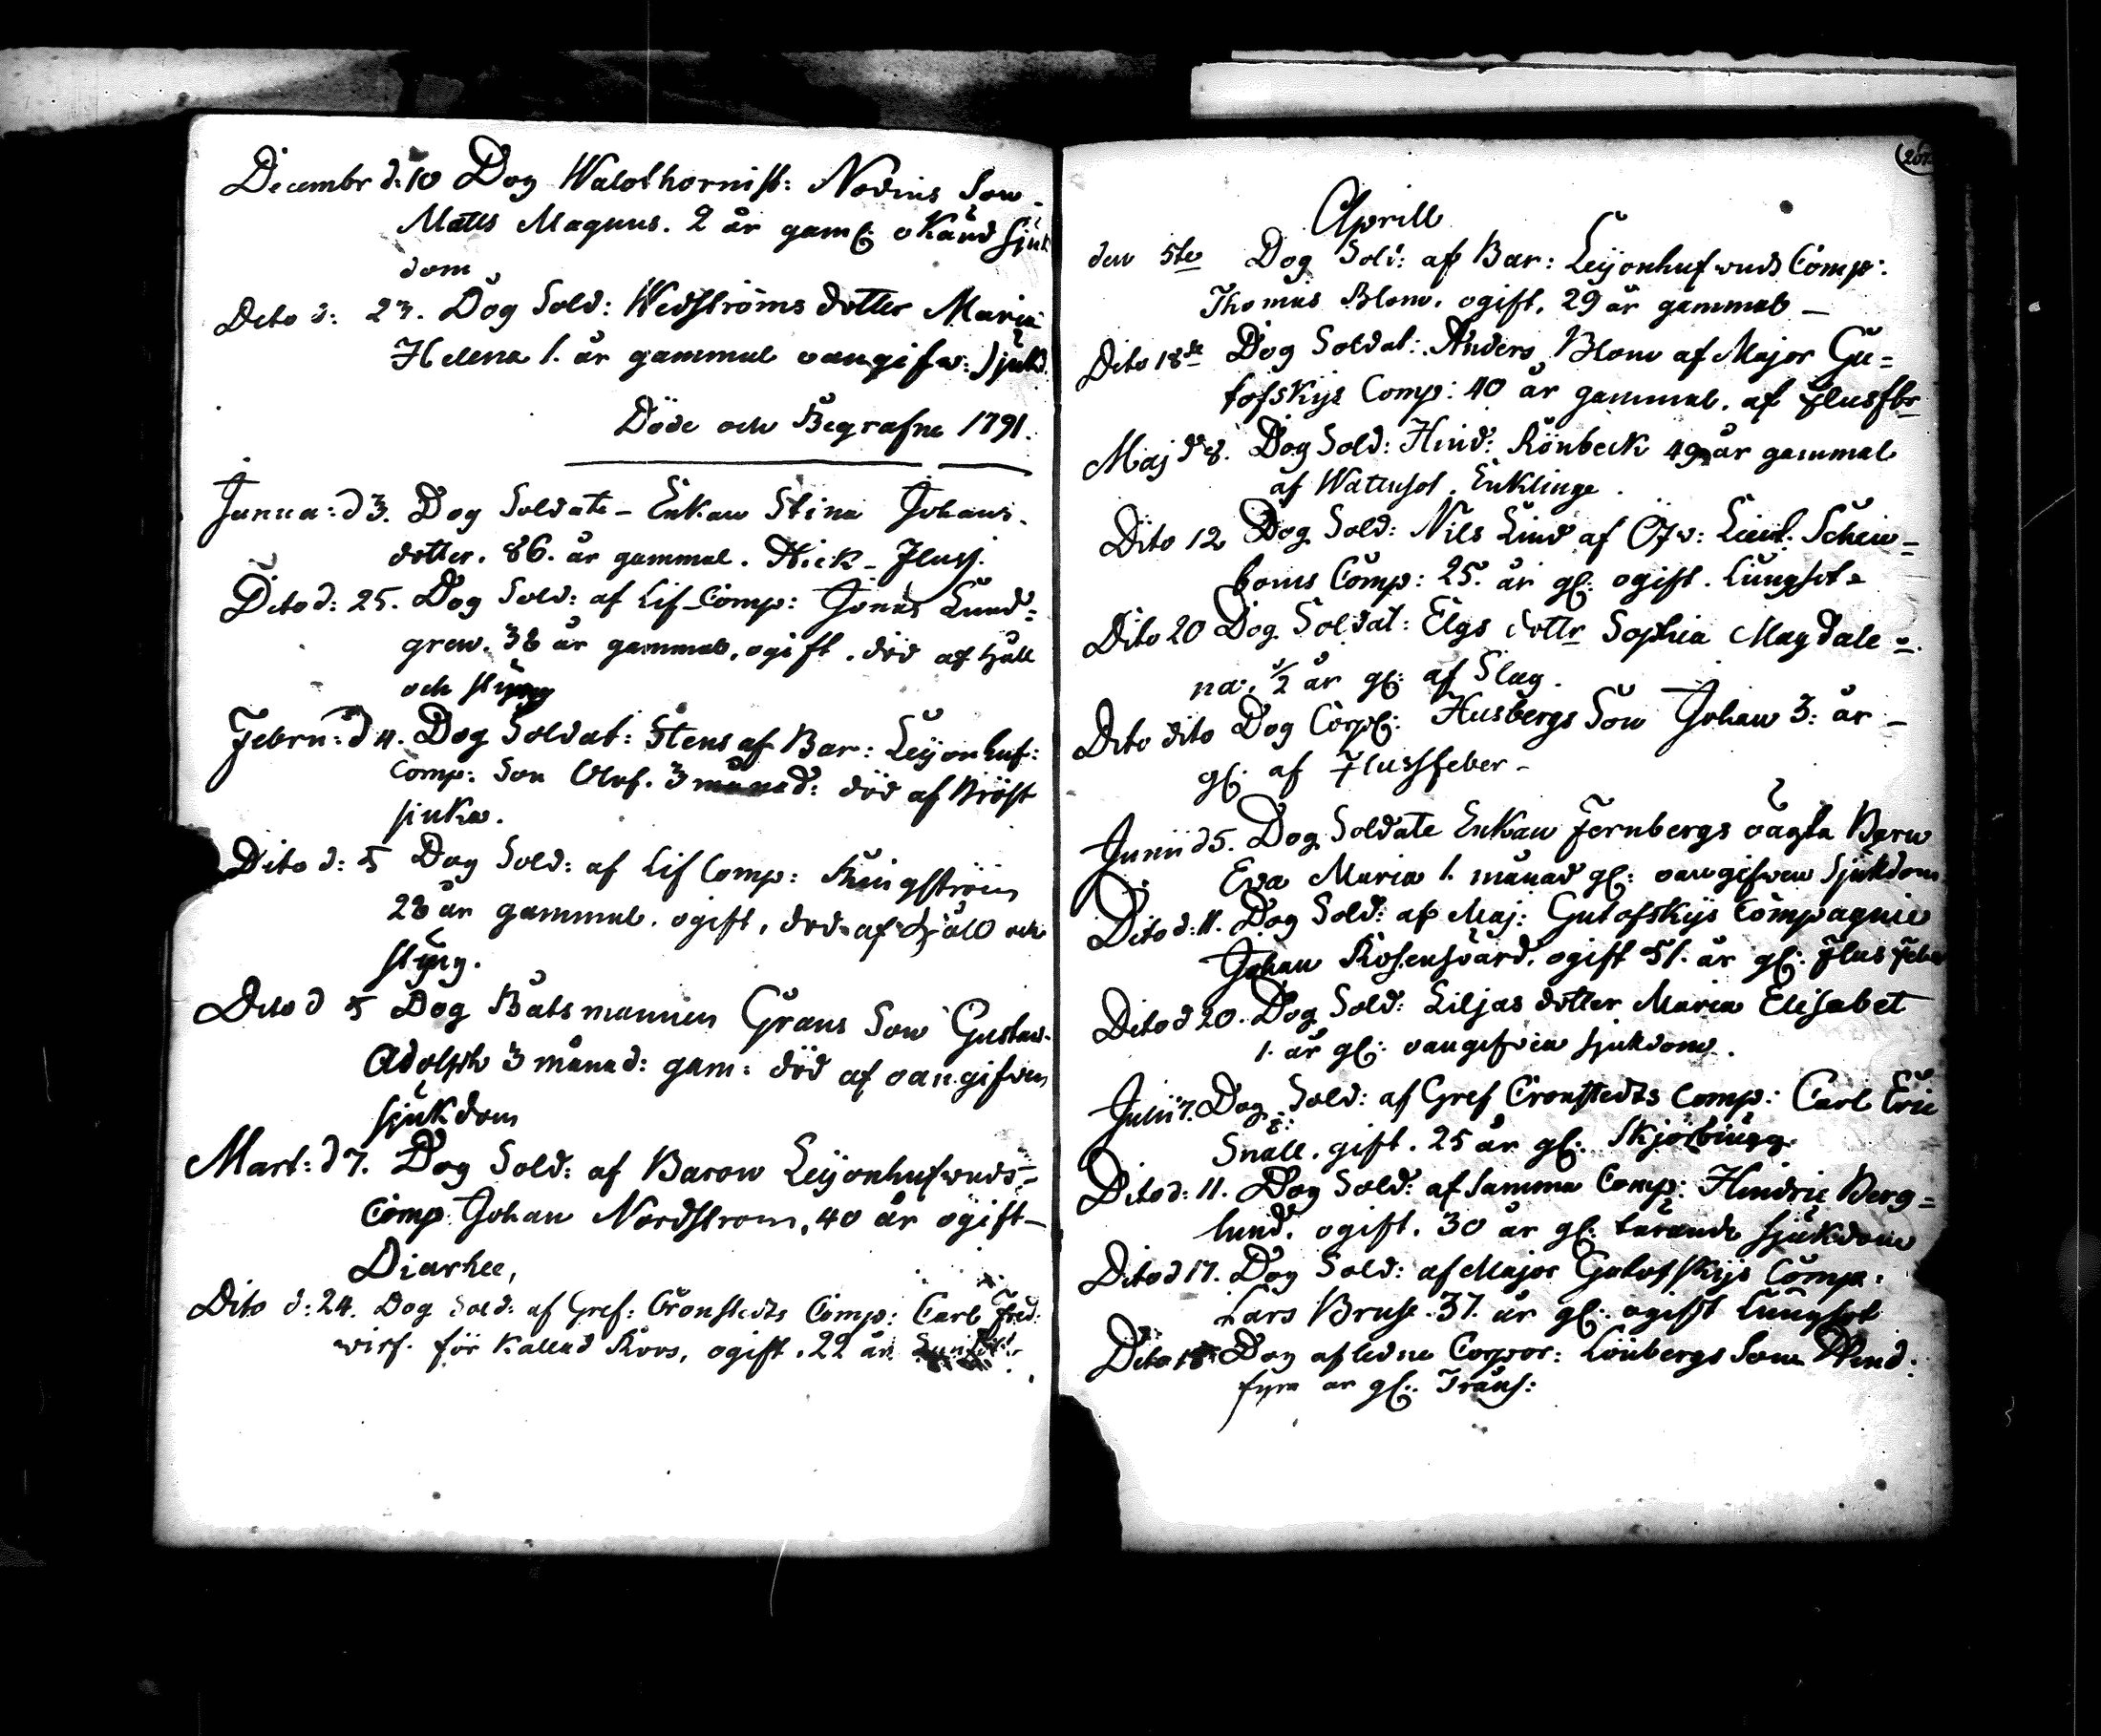 Decembr d: 10 Dog Waldthornist: Nodins Son
Matts Magnus. 2 år gaml: okänd sjuk
dom
Dito d: 23. Dog Sold: Wedströms dotter Maria
Helena 1. år gammal oangifw: sjukd.
Döde och Begrafne 1791.
Janua: d 3. Dog Soldate-Enkan Stina Johans-
dotter. 86. år gammal. Hick-Fluss.
Dito d: 25. Dog Sold: af Lif-Comp: Jonas Lund=
gren. 38 år gammal, ogift, död af håll
och styng
Febru: d 4. Dog Soldat: Stens af Bar: Leijonhuf:
Comp: Son Olof. 3 månad: död af Bröst
siuka.
Dito d: 5 Dog Sold: af Lif Comp: Ringström
28 år gammal. ogift, död af håll och
styng.
Dito d 5 Dog Båtsmannen Grans Son Gustaw
Adolph 3 månad: gam: död af oangifwen
sjukdom
Mart: d 7. Dog Sold: af Baron Leijonhufwuds-
Comp: Johan Nordstrom, 40 år ogift-
Diarhee,
Dito d: 24. Dog Sold: af Gref: Cronstedts Comp: Carl Fred:
för kallad Roos, ogift. 22 år.
Aprill
den 5te Dog Sold: af Bar: Leijonhufwuds Comp:
Thomas Blom. ogift. 29 år gammal -
Dito 18de Dog Soldat: Anders Blom af Major Gu=
tofskijs Comp: 40 år gammal. af flussfbr
Maj d 8. Dog Sold: Hind: Rönbeck 49 år gammal
af Watusot. Enklinge.
Dito 12 Dog Sold: Nils Lind af Öfw: Lieut: Schein=
boms Comp: 25. år gl: ogift. Lungsot-
Dito 20 Dog Soldat: Elgs dottr Sophia Magdale=
na, 1/2 år gl: af Slag.
Dito dito Dog Corpl: Husbergs Son Johan 3: år -
gl: af Flussfeber-
Junii d 5. Dog Soldate Enkan Fernbergs oägta Barn
Eva Maria 1. månad gl: oangifwen Sjukdom
Dito d: 11. Dog Sold: af Maj: Gutofskijs Compagnie
Johan Rosensvärd. ogift 51. år gl: Flus feber
Dito d 20. Dog Sold: Liljas dotter Maria Elisabet
1. år gl: oangifwen sjukdom.
Julii 7. Dog Sold: af Gref Cronstedts Comp: Carl Eric
Snäll. gift. 25 år gl: Skjörbiugg.
Dito d: 11. Dog Sold: af samma Comp: Hindric Berg=
lund. ogift. 30 år gl: tärande sjukdom
Dito d 17. Dog Sold: af Major Gutofskijs Comp:
Lars Bruse. 37. år gl: ogift Lungsot
Dito 18 Dog afledne Corpor: Lönbergs Son
fyra år gl: